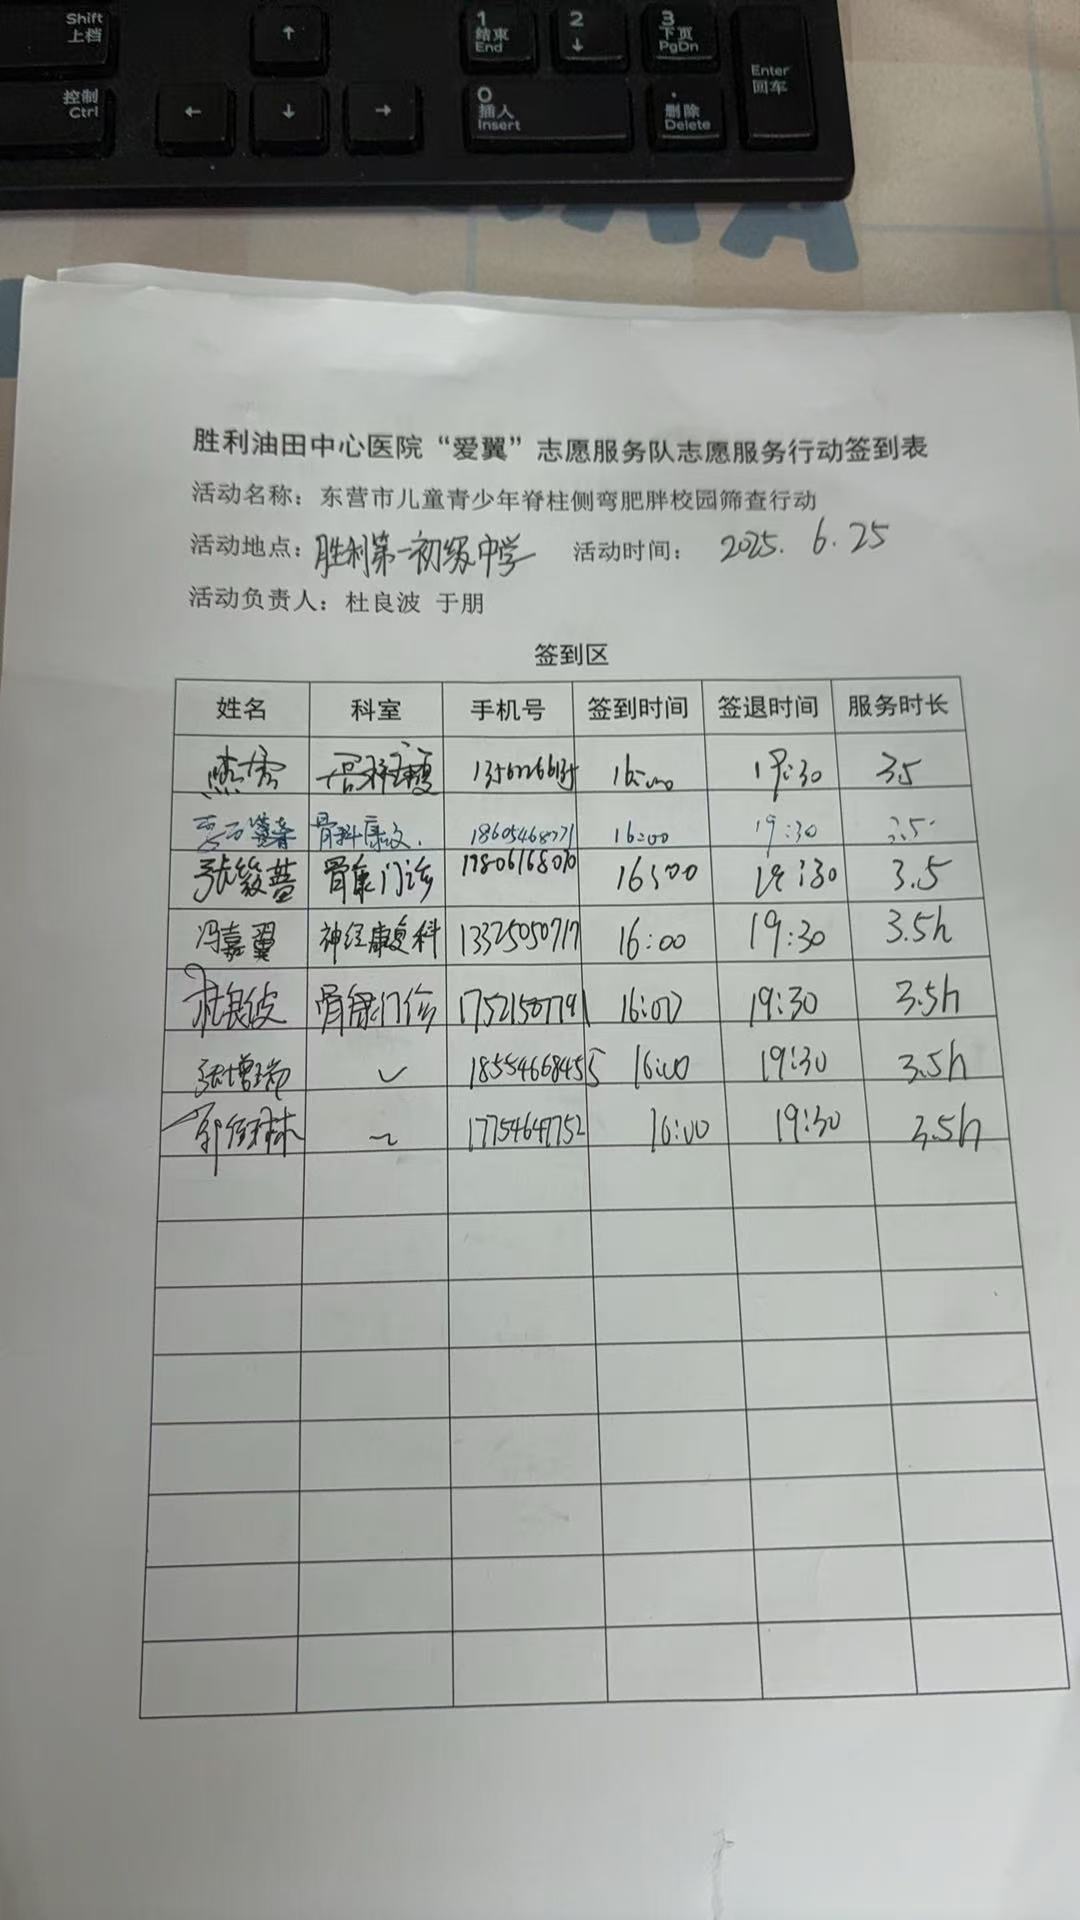 Shift
上档
↑
1 结束 End
2 ↓
3 下页 PgDn
Enter 回车
控制 Ctrl
← ↓ →
0 插入 Insert
. 删除 Delete
胜利油田中心医院“爱翼”志愿服务队志愿服务行动签到表
活动名称：东营市儿童青少年脊柱侧弯肥胖校园筛查行动
活动地点：胜利第一初级中学 活动时间： 2025. 6. 25
活动负责人：杜良波 于朋
签到区
姓名 科室 手机号 签到时间 签退时间 服务时长
16:00 19:30 3.5
骨科康复. 16:00 19:30 3.5
骨康门诊 16:00 19:30 3.5
冯嘉翼 神经康复科 13325050717 16:00 19:30 3.5h
杜良波 骨康门诊 16:00 19:30 3.5h
张增瑞 ✓ 18554668455 16:00 19:30 3.5h
16:00 19:30 3.5h